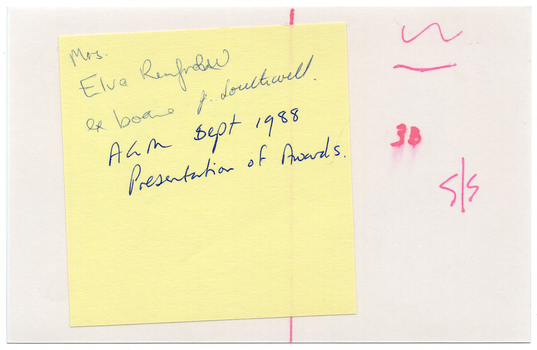 Mrs.
Elva Renfrew
ex J. Southwell.
AGM Sept 1988
Presentation of Awards.
3B
S/S